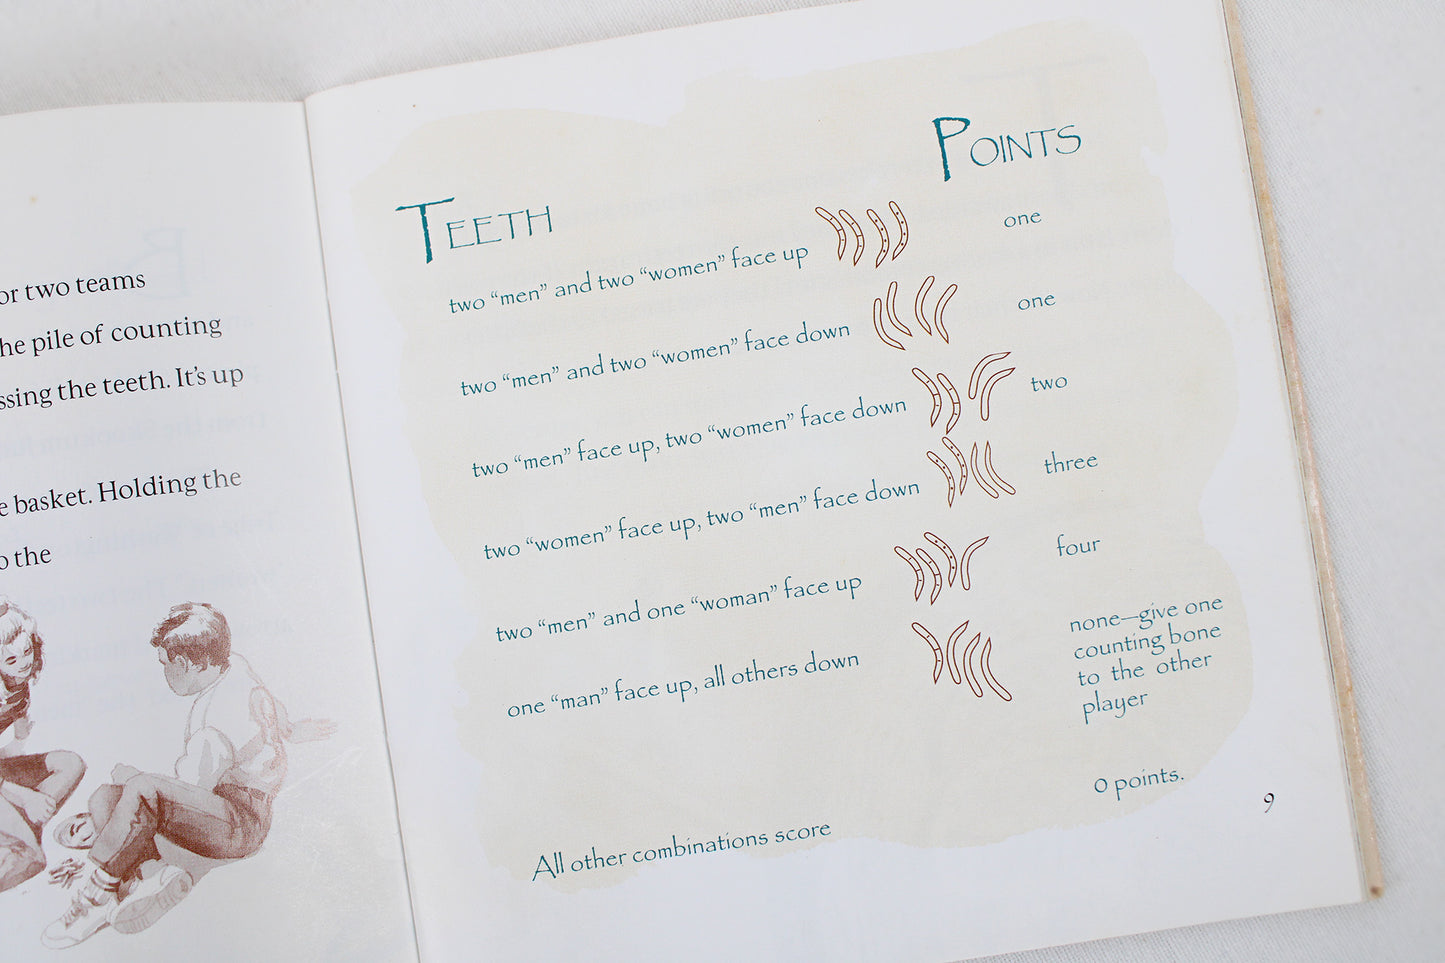 or two teams
he pile of counting
ssing the teeth. It's up
e basket. Holding the
o the
TEETH POINTS
two “men” and two “women” face up one
two “men” and two “women” face down one
two “men” face up, two “women” face down two
two “women” face up, two “men” face down three
two “men” and one “woman” face up four
one “man” face up, all others down none—give one
counting bone
to the other
player
All other combinations score 0 points.
9